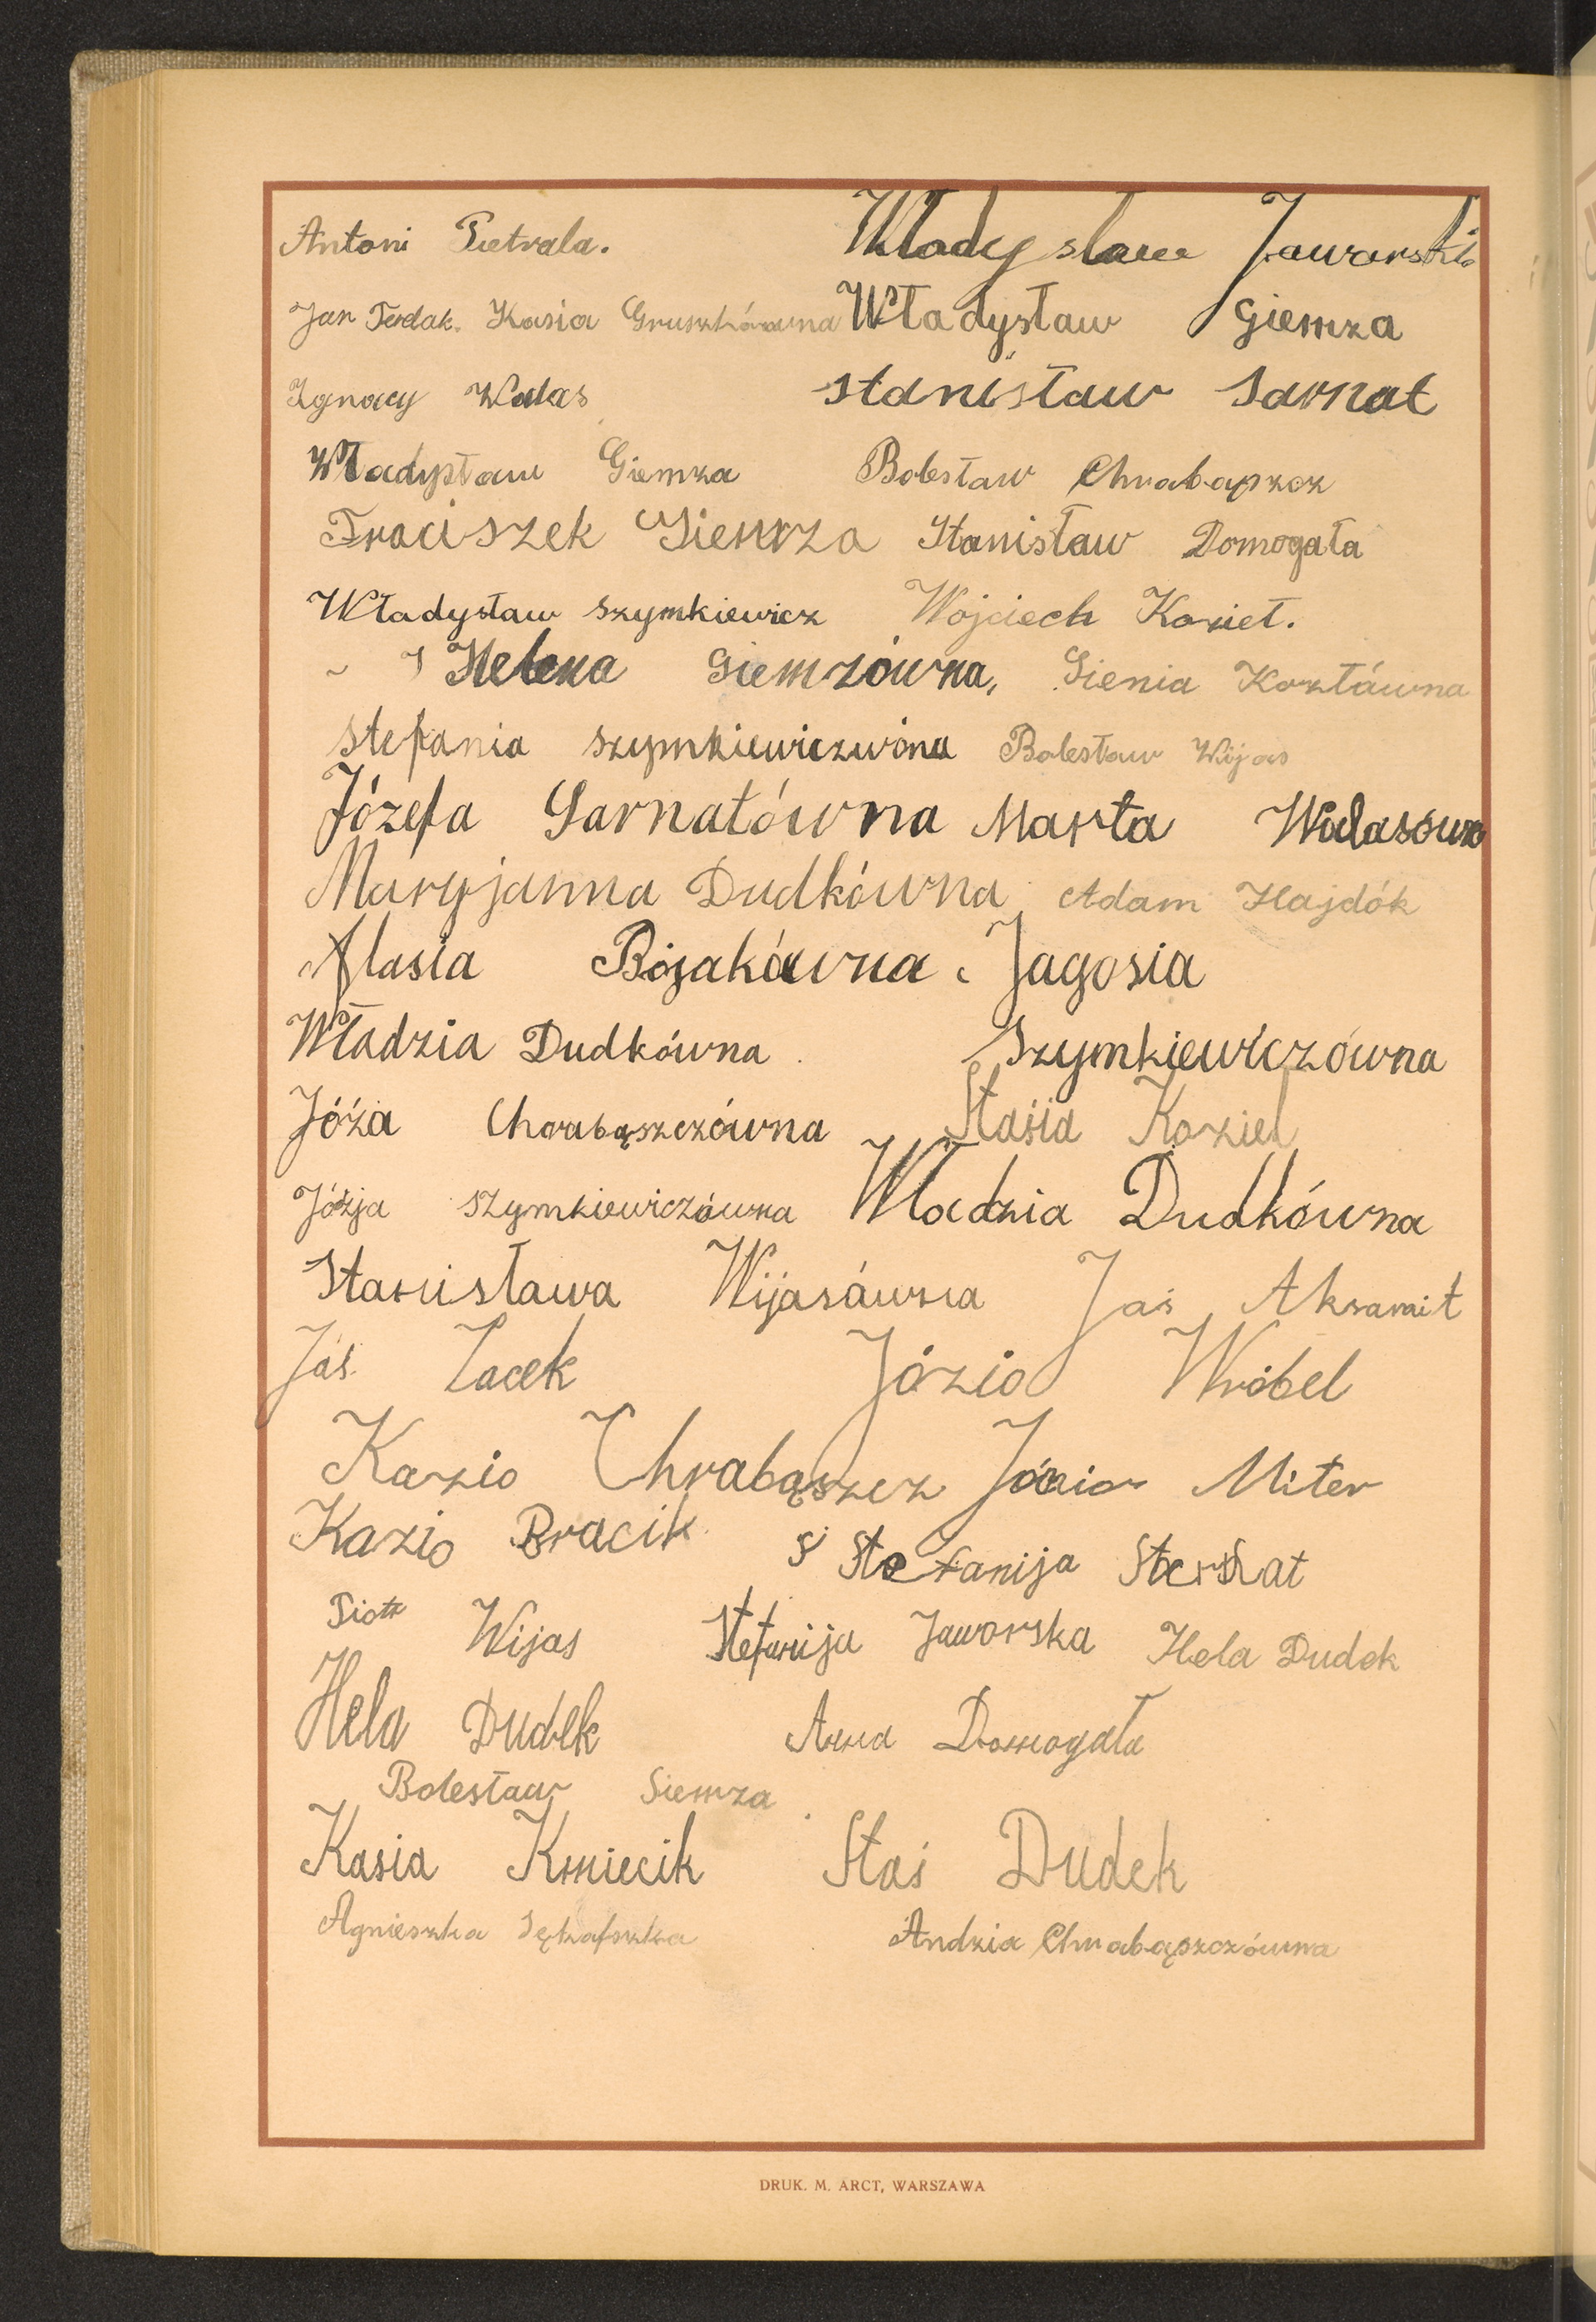 Antoni Pietrala. Władysław Jaworski
Jan Tudak. Kasia Gruszkówna Władysław Giemza
Ignacy Walas Stanisław Sarnat
Władysław Giemza Bolesław Chrabąszcz
Fraciszek Giemza Stanisław Domogała
Władysław Szymkiewicz Wojciech Kozieł.
Helena Giemzówna, Gienia Koztówna
Stefania Szymkiewiczwóna Bolesław Wijas
Józefa Sarnatówna Marta Walasówna
Maryjanna Dudkówna Adam Hajdók
Bojakówna. Jagosia
Władzia Dudkówna Szymkiewiczówna
Józia Chrabąszczówna Stasia Kozieł
Józja Szymkiewiczówna Władzia Dudkówna
Stanisława Wijasówna Jaś Aksamit
Jaś. Zacek Józio Wróbel
Kazio Chrabąszcz Józio Miter
Kazio Bracik Stefanija
Piotr Wijas Stefanija Jaworska Hela Dudek
Hela Dudek Anna Domogała
Bolesław Giemza
Kasia Kmiecik Staś Dudek
Agnieszka Andzia Chrabąszczówna
DRUK. M. ARCT, WARSZAWA